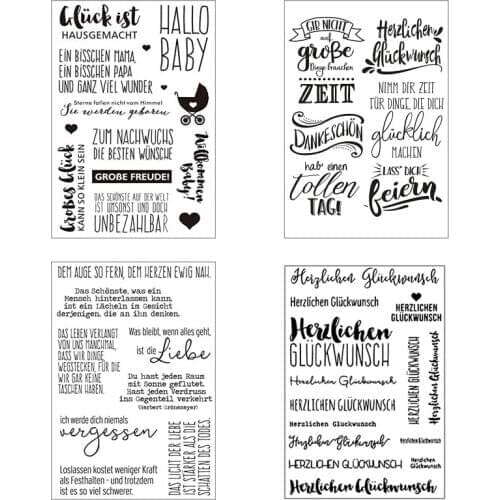 Glück ist
HAUSGEMACHT
HALLO
BABY
EIN BISSCHEN MAMA,
EIN BISSCHEN PAPA
UND GANZ VIEL WUNDER
Sterne fallen nicht vom Himmel
Sie werden geboren
Großes Glück
KANN SO KLEIN SEIN
ZUM NACHWUCHS
DIE BESTEN WÜNSCHE
GROßE FREUDE!
DAS SCHÖNSTE AUF DER WELT
IST UMSONST UND DOCH
UNBEZAHLBAR
Willkommen
Baby!
GIB NICHT
auf
große
Dinge brauchen
ZEIT
DANKESCHÖN
hab einen
tollen
TAG!
Herzlichen
Glückwunsch
NIMM DER ZEIT
FÜR DINGE, DIE DICH
glücklich
MACHEN
LASS' DICH
feiern
DEM AUGE SO FERN, DEM HERZEN EWIG NAH.
Das Schönste, was ein
Mensch hinterlassen kann,
ist ein Lächeln im Gesicht
derjenigen, die an ihn denken.
DAS LEBEN VERLANGT
VON UNS MANCHMAL,
DASS WIR DINGE
WEGSTECKEN, FÜR DIE
WIR GAR KEINE
TASCHEN HABEN.
Was bleibt, wenn alles geht,
ist die Liebe
Du hast jeden Raum
mit Sonne geflutet.
Hast jeden Verdruss
ins Gegenteil verkehrt
(Herbert Grönemeyer)
ich werde dich niemals
vergessen
Loslassen kostet weniger Kraft
als Festhalten - und trotzdem
ist es so viel schwerer.
DAS LICHT DER LIEBE
IST STÄRKER ALS DIE
SCHATTEN DES TODES.
Herzlichen Glückwunsch
Herzlichen Glückwunsch
HERZLICHEN
GLÜCKWUNSCH
Herzlichen
GLÜCKWUNSCH
Herzlichen Glückwunsch
HERZLICHEN GLÜCKWUNSCH
Herzlichen Glückwunsch
Herzlichen Glückwunsch
Herzlichen Glückwunsch
HERZLICHEN GLÜCKWUNSCH
Herzlichen Glückwunsch
HERZLICHEN GLÜCKWUNSCH
Herzlichen Glückwunsch
Herzlichen Glückwunsch
Herzlichen Glückwunsch